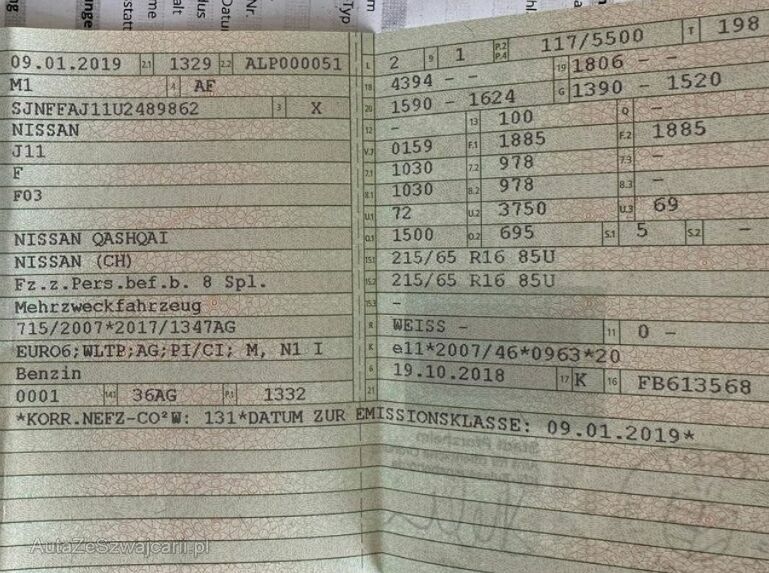 Nr.
Typ
09.01.2019 2.1 1329 2.2 ALP000051
M1 4 AF
SJNFFAJ11U2489862 3 X
NISSAN
J11
F
F03
NISSAN QASHQAI
NISSAN (CH)
Fz.z.Pers.bef.b. 8 Spl.
Mehrzweckfahrzeug
715/2007*2017/1347AG
EURO6;WLTP;AG;PI/CI; M, N1 I
Benzin
0001 14.1 36AG P.1 1332
L 2 9 1 P.2 P.4 117/5500 T 198
18 4394 - - 19 1806 - -
20 1590 - 1624 G 1390 - 1520
12 - 13 100 Q -
V.7 0159 F.1 1885 F.2 1885
7.1 1030 7.2 978 7.3 -
8.1 1030 8.2 978 8.3 -
U.1 72 U.2 3750 U.3 69
O.1 1500 O.2 695 S.1 5 S.2 -
15.1 215/65 R16 85U
15.2 215/65 R16 85U
15.3 -
R WEISS - 11 0 -
K e11*2007/46*0963*20
6 19.10.2018 17 K 16 FB613568
21
*KORR.NEFZ-CO²W: 131*DATUM ZUR EMISSIONSKLASSE: 09.01.2019*
AutaZeSzwajcarii.pl